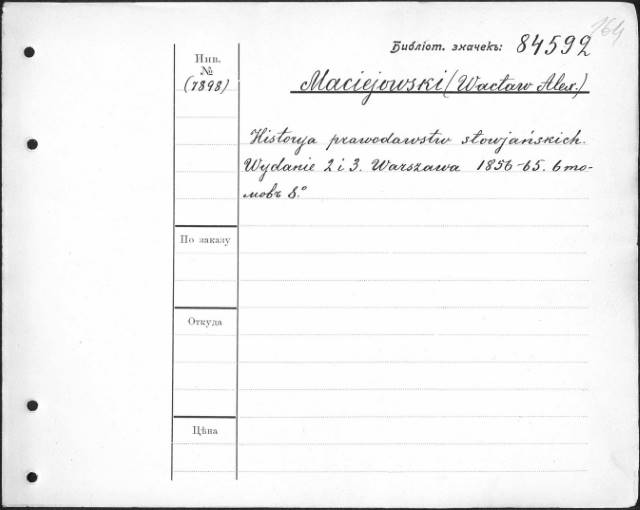 164
Библіот. значекъ: 84592
Инв.
№
(7898)
Maciejowski (Wacław Alex.)
Historya prawodawstw słowjańskich.
Wydanie 2 i 3. Warszawa 1856-65. 6 то-
мовъ 8.°
По заказу
Откуда
Цѣна